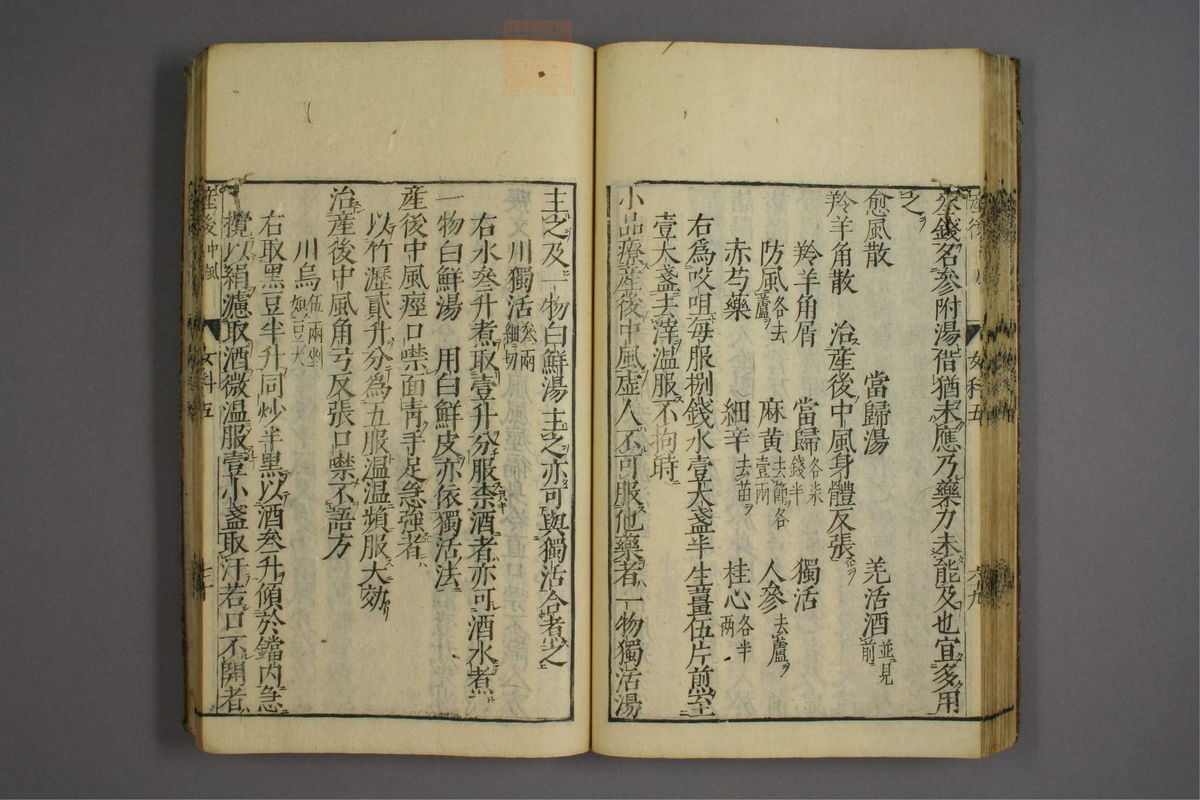 錢名參附湯偕猶未應乃藥力未能及也宜多用
之
愈風散　當歸湯　羌活酒並見前
羚羊角散　治產後中風身體反張
羚羊角屑　當歸各柒錢半　獨活
防風各去蘆　麻黃去節各壹兩　人參去蘆
赤芍藥　細辛去苗　桂心各半兩
右爲㕮咀每服捌錢水壹大盞半生薑伍片煎至
壹大盞去滓溫服不拘時
小品療產後中風虛人不可服他藥者一物獨活湯
主之及一物白鮮湯主之亦可與獨活合煮之
川獨活參兩細切
右水叄升煮取壹升分服柰酒者亦可酒水煮
一物白鮮湯　用白鮮皮亦依獨活法
產後中風痙口噤面青手足急強者
以竹瀝貳升分爲五服溫溫頻服大効
治產後中風角弓反張口噤不語方
川烏伍兩剉如豆大
右取黑豆半升同炒半黑以酒叄升傾於鐺內急
攪以絹濾取酒微溫服壹小盞取汗若口不開者
產後中風
女科五
女科五
六九